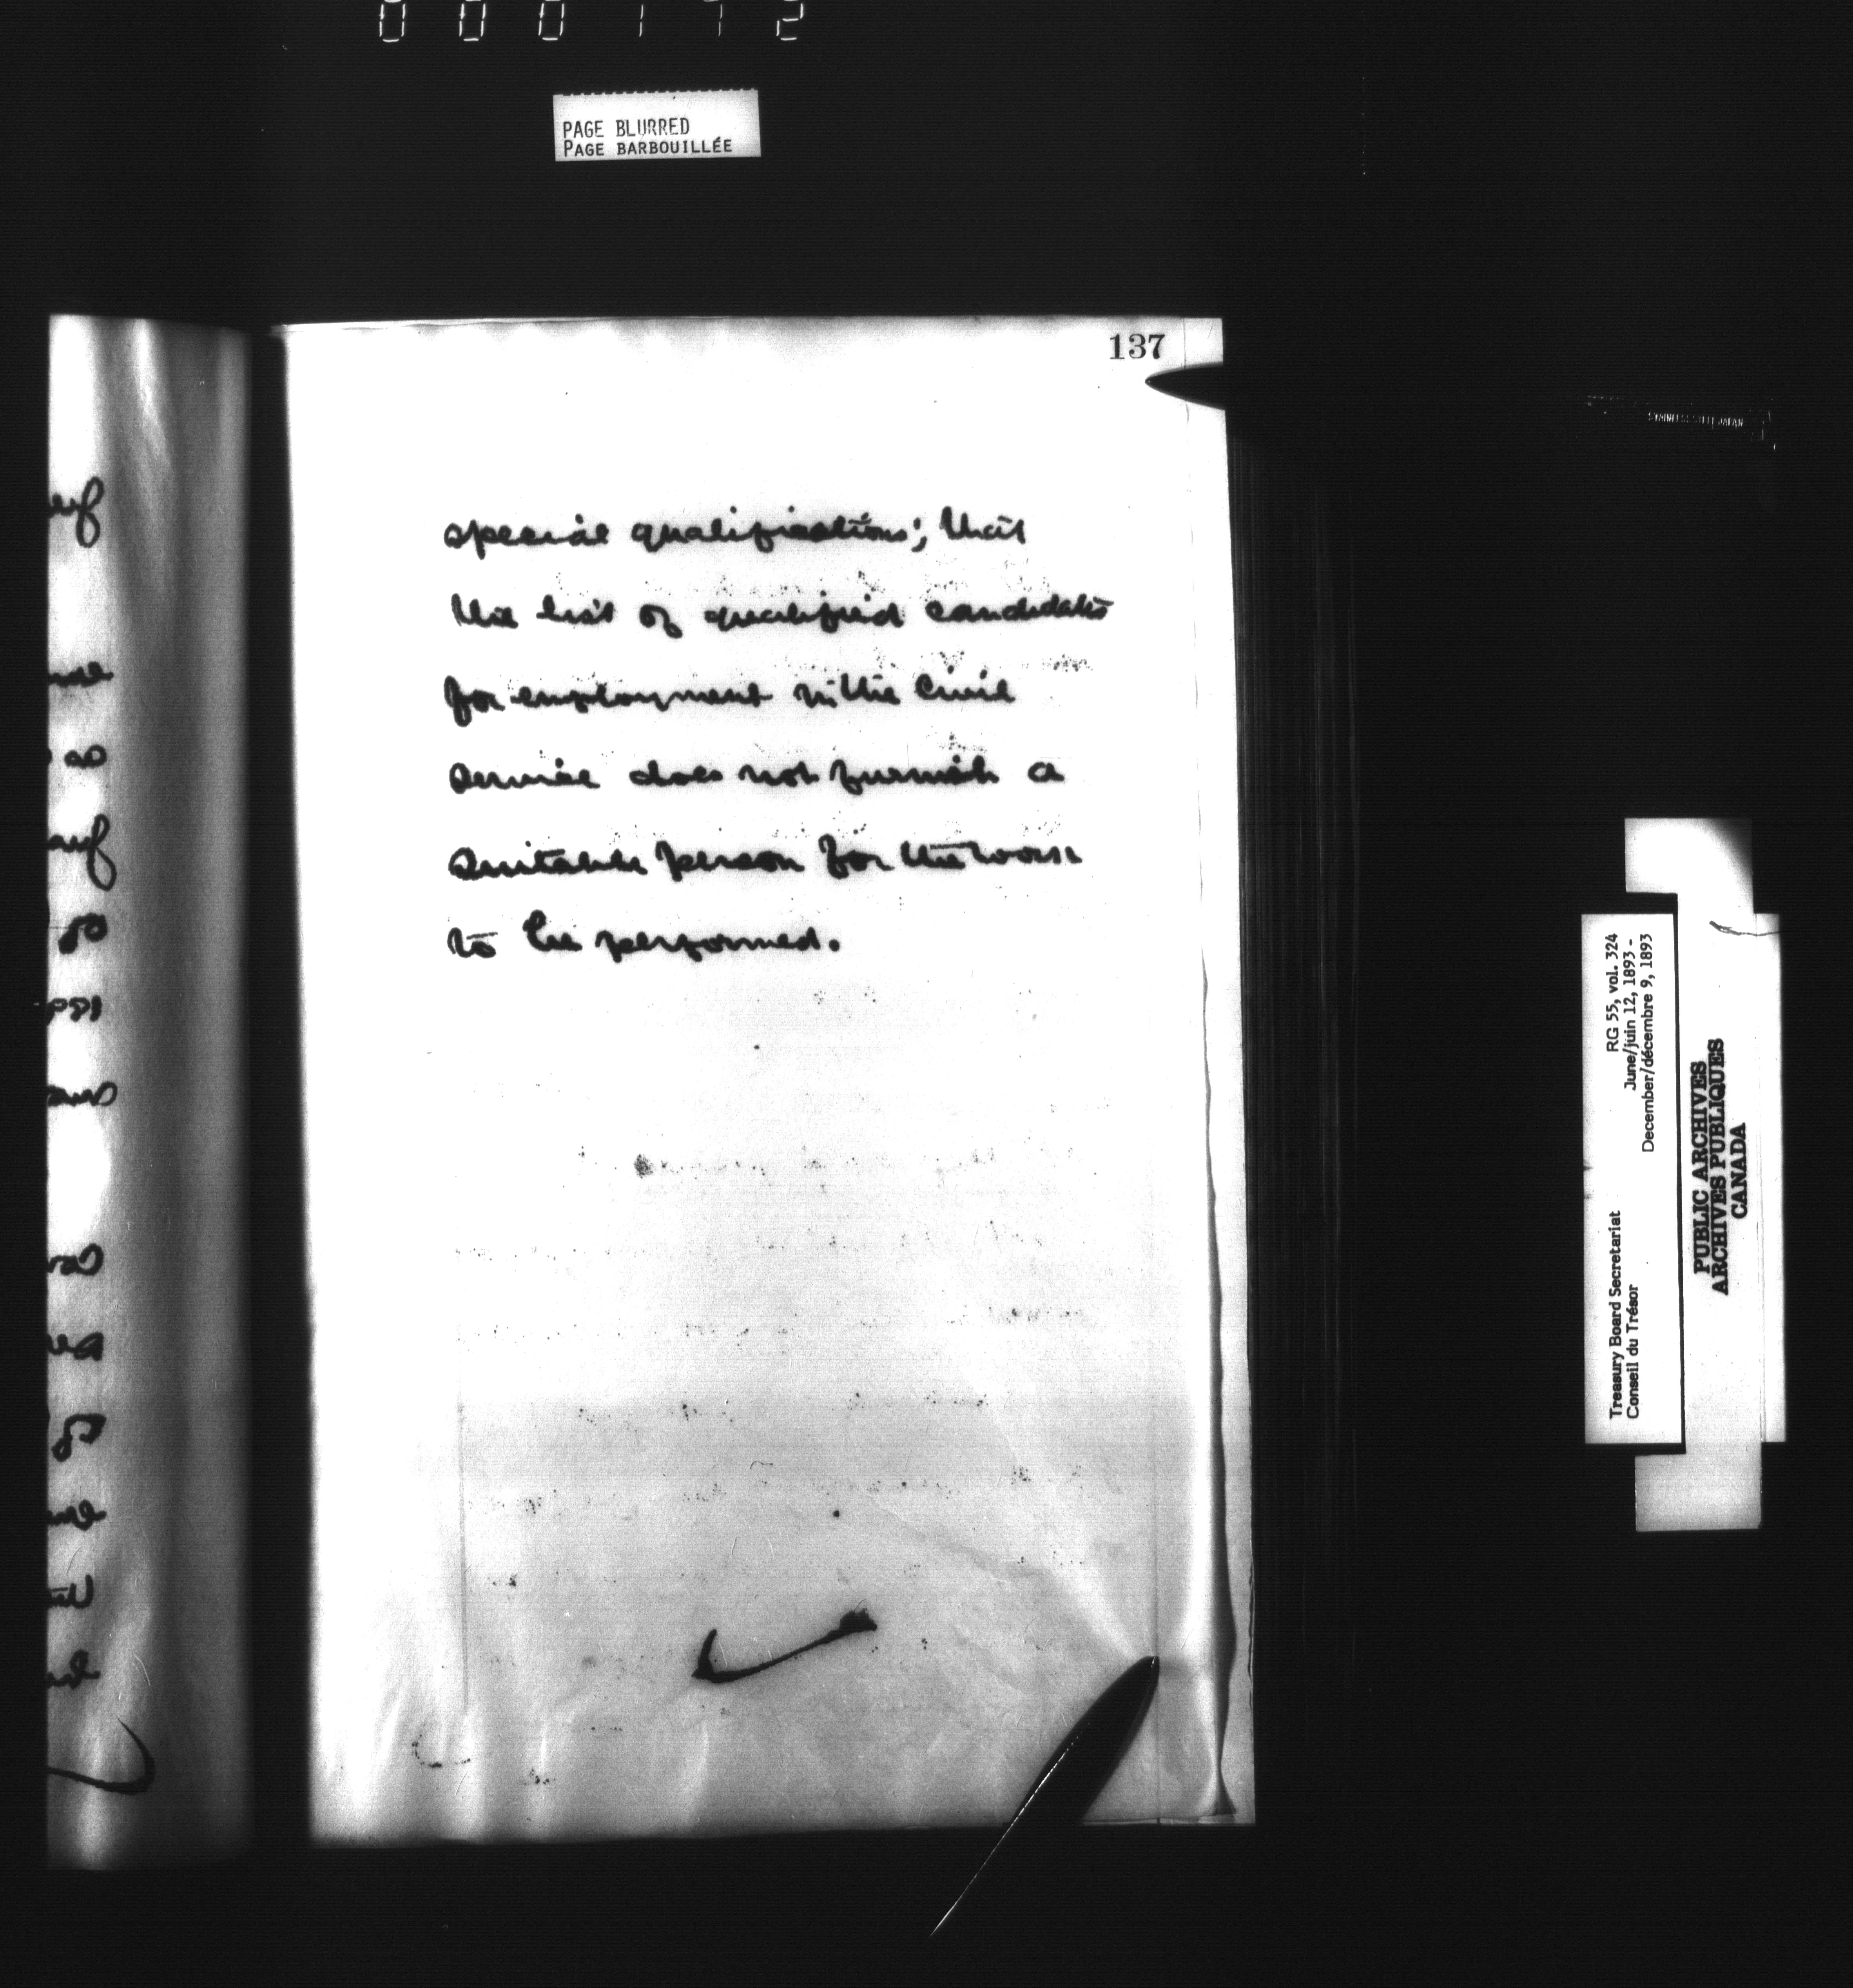 000112
PAGE BLURRED
PAGE BARBOUILLÉE
137
special qualifications; that
the list of qualified candidates
for employment in the Civil
Service does not furnish a
suitable person for the work
to be performed.
STAINLESS STEEL JAPAN
RG 55, vol. 324
June/juin 12, 1893 -
December/décembre 9, 1893
Treasury Board Secretariat
Conseil du Trésor
PUBLIC ARCHIVES
ARCHIVES PUBLIQUES
CANADA